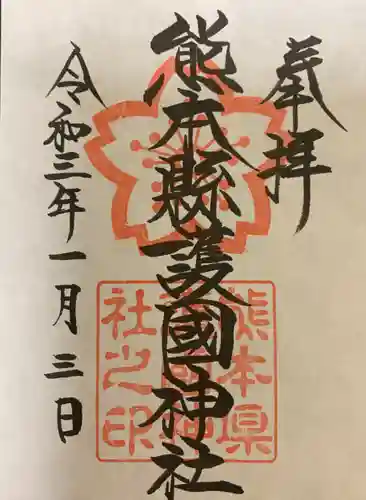 奉拝
熊本縣護國神社
令和三年一月三日
熊本県
護國神
社之印